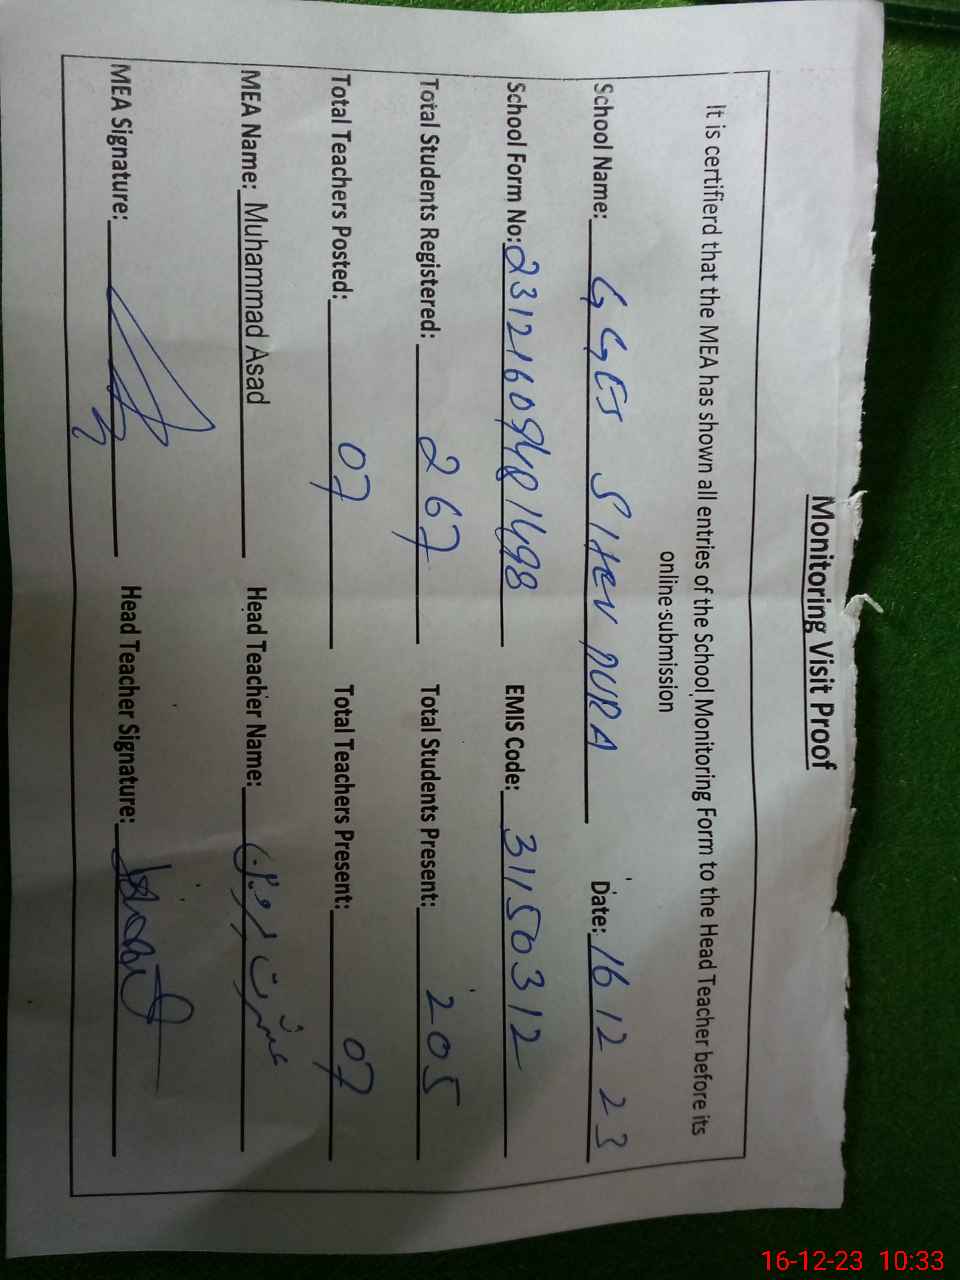 Monitoring Visit Proof
It is certifierd that the MEA has shown all entries of the School Monitoring Form to the Head Teacher before its
online submission
School Name: GGES SHEV PURA Date: 16 12 23
School Form No: EMIS Code: 31150312
Total Students Registered: 267 Total Students Present: 205
Total Teachers Posted: 07 Total Teachers Present: 07
MEA Name: Muhammad Asad Head Teacher Name: عشرت پروین
MEA Signature: Head Teacher Signature:
16-12-23 10:33